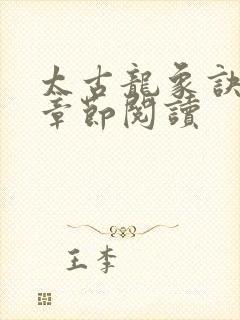 太古龍象訣
章節閱讀
王李